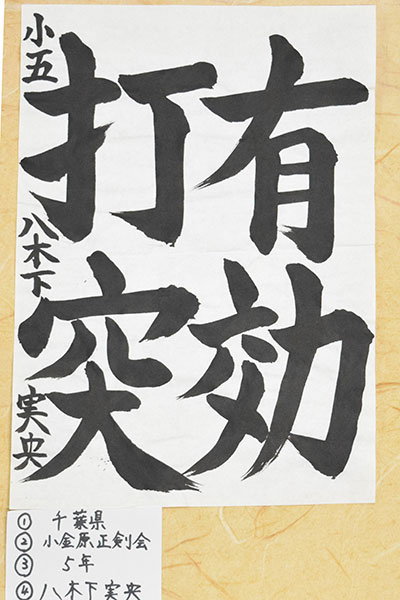 有効
打突
小五 八木下 実央
① 千葉県
② 小金原正剣会
③ 5年
④ 八木下実央